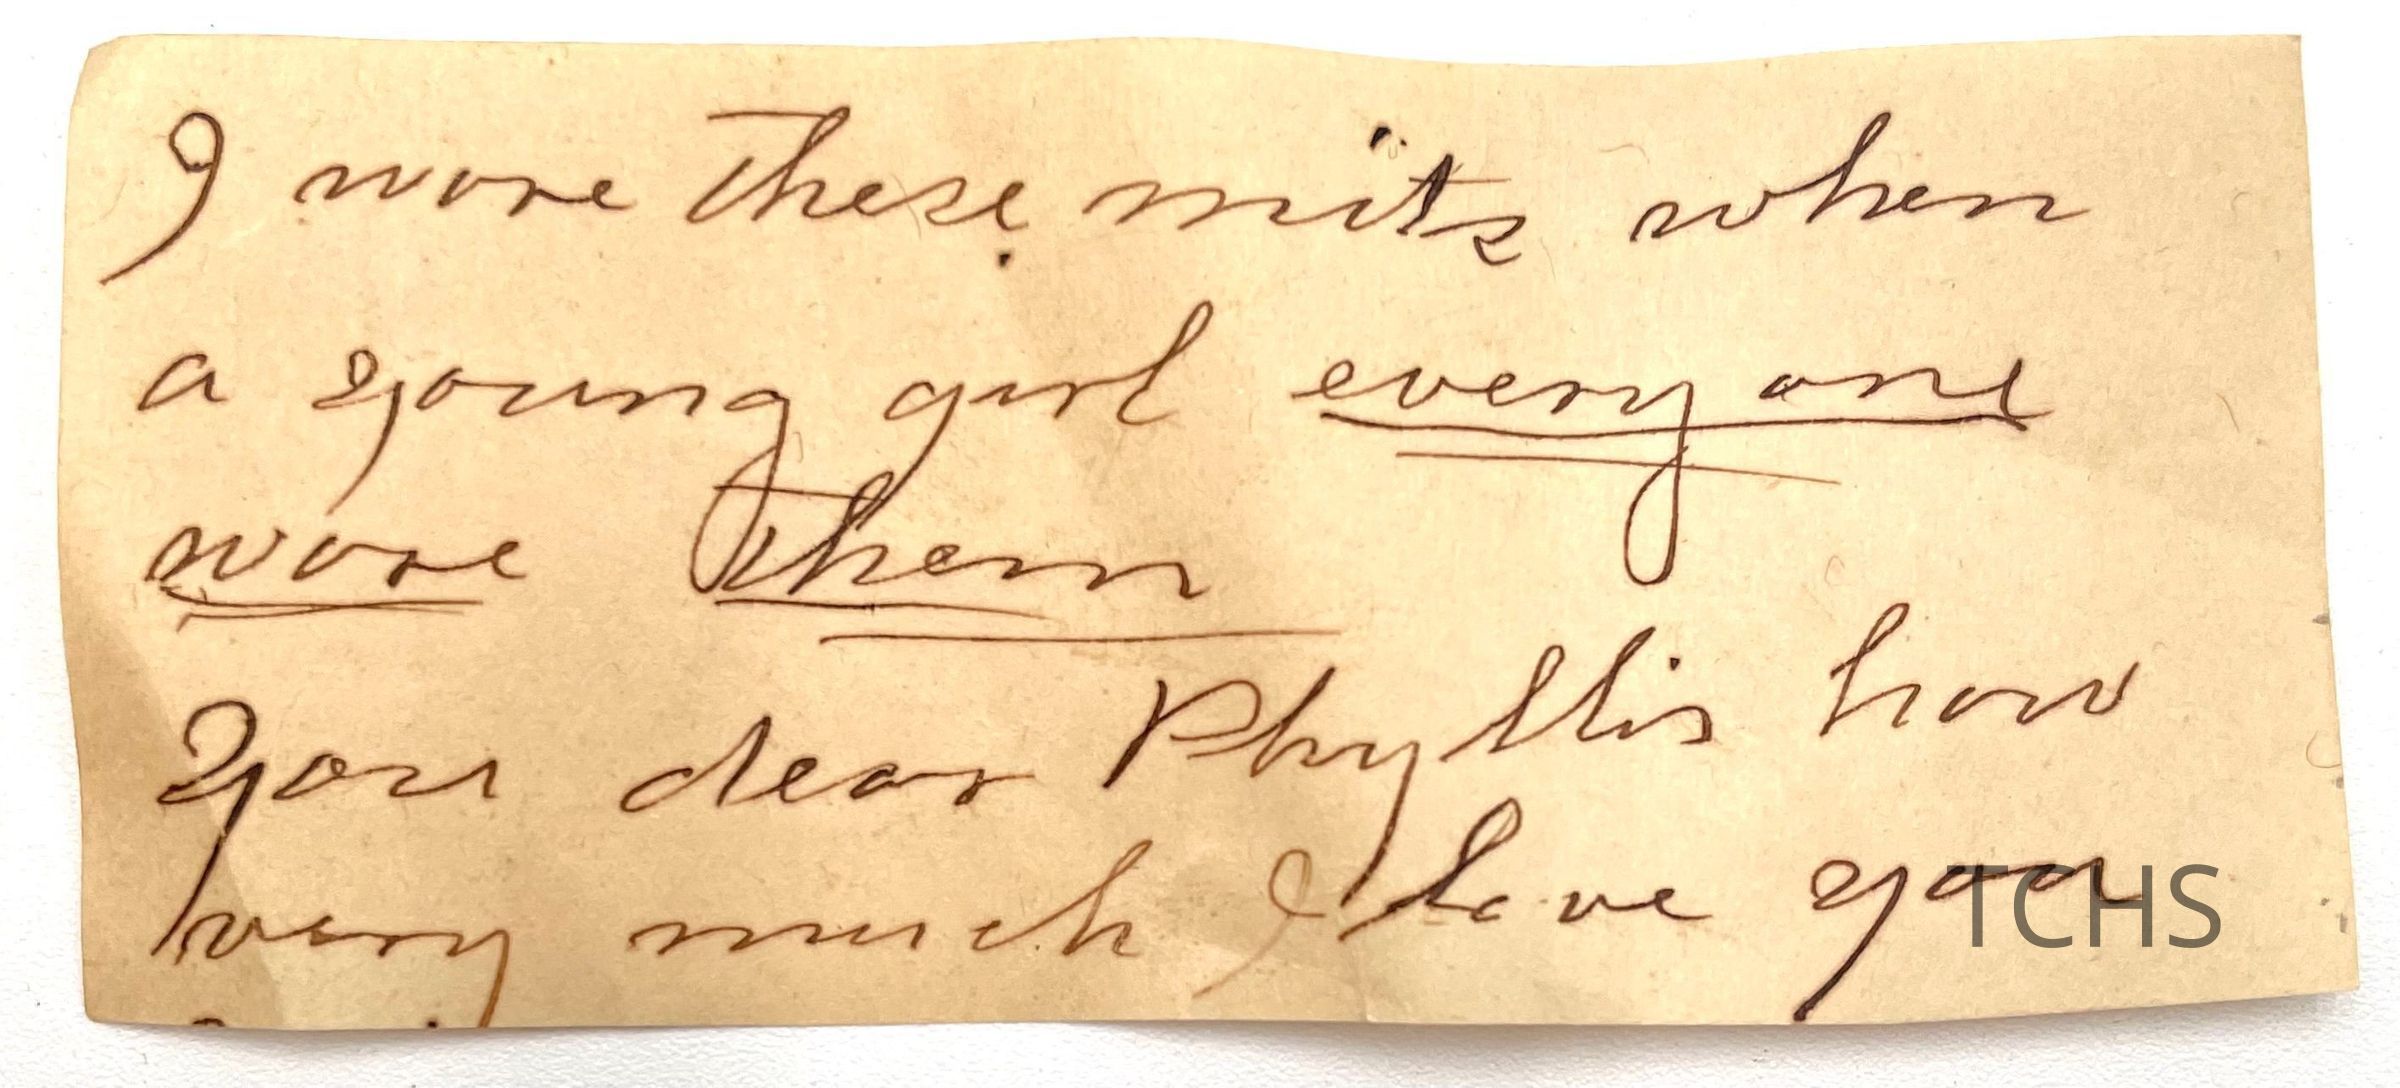 I wore these mits when
a young girl every one
wore them
You dear Phyllis how
very much I love you
TCHS